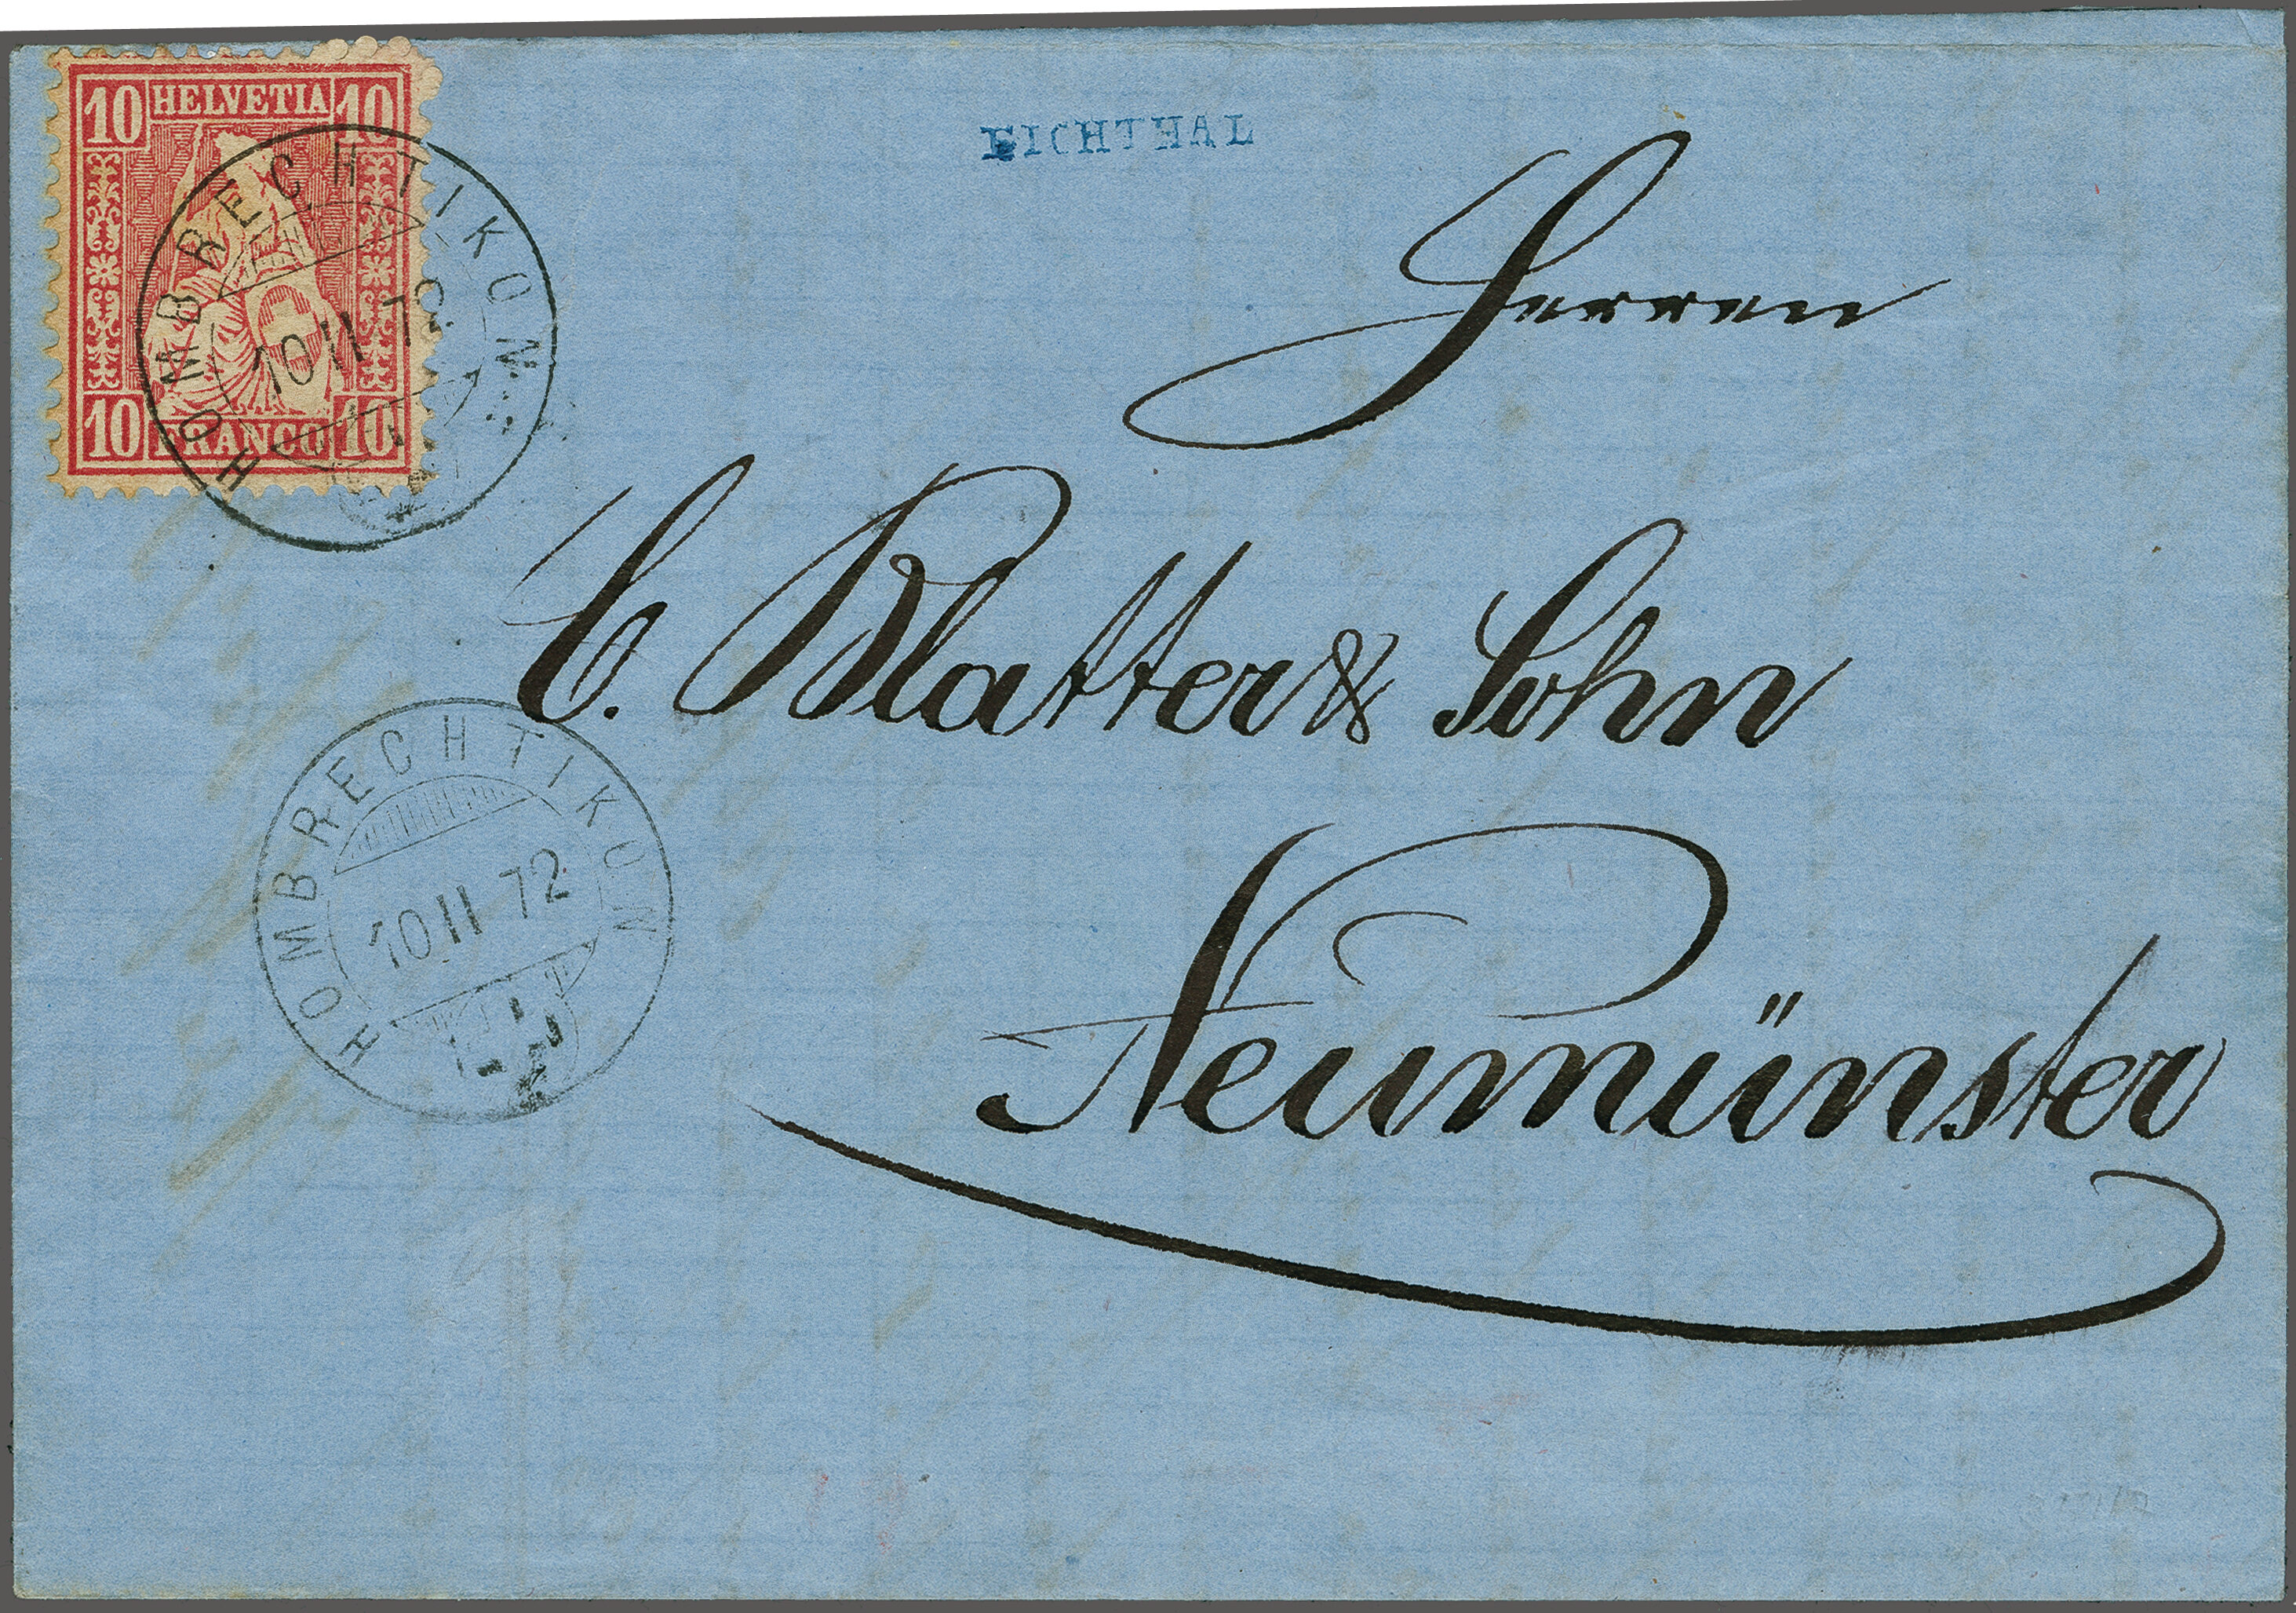 10 HELVETIA 10
10 FRANCO 10
HOMBRECHTIKON
10 II 72
EICHTHAL
Herren
C. Blatter & Sohn
Neumünster
HOMBRECHTIKON
10 II 72